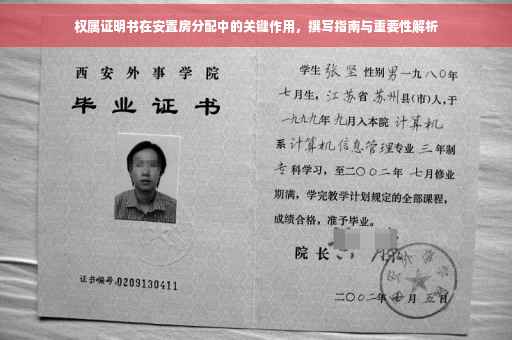 权属证明书在安置房分配中的关键作用，撰写指南与重要性解析
西安外事学院
毕业证书
证书编号:0209130411
学生 张坚 性别 男 一九八〇年
七月生，江苏省 苏州县(市)人，于
一九九九年 九月入本院 计算机
系 计算机信息管理专业 三 年制
专科学习，至二〇〇二年 七月修业
期满，学完教学计划规定的全部课程，
成绩合格，准予毕业。
院长
二〇〇二年 七月 五日